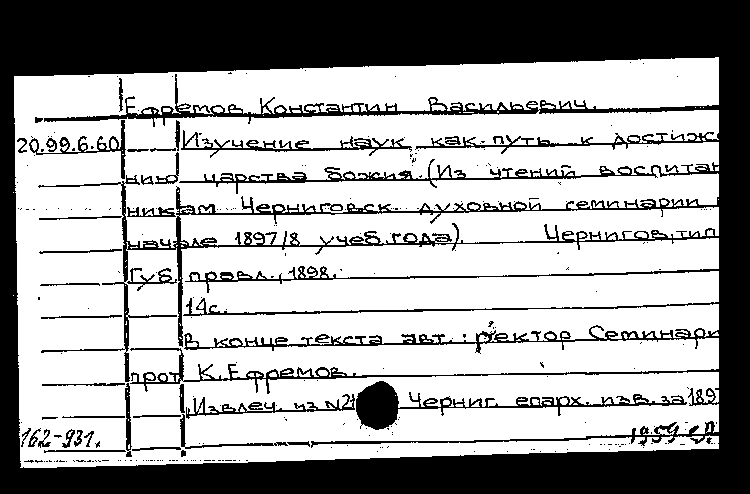 Ефремов, Константин Васильевич.
20.99.6.60 Изучение наук как путь к достиже
нию царства божия. (Из чтений воспитан
никам Черниговск. духовной семинарии в
начале 1897/8 учеб. года). Чернигов, тип.
Губ. правл., 1898.
14с.
В конце текста авт.: ректор Семинари
прот К. Ефремов.
Извлеч. из N2 Черниг. епарх. изв. за 1897
162-931. 1959